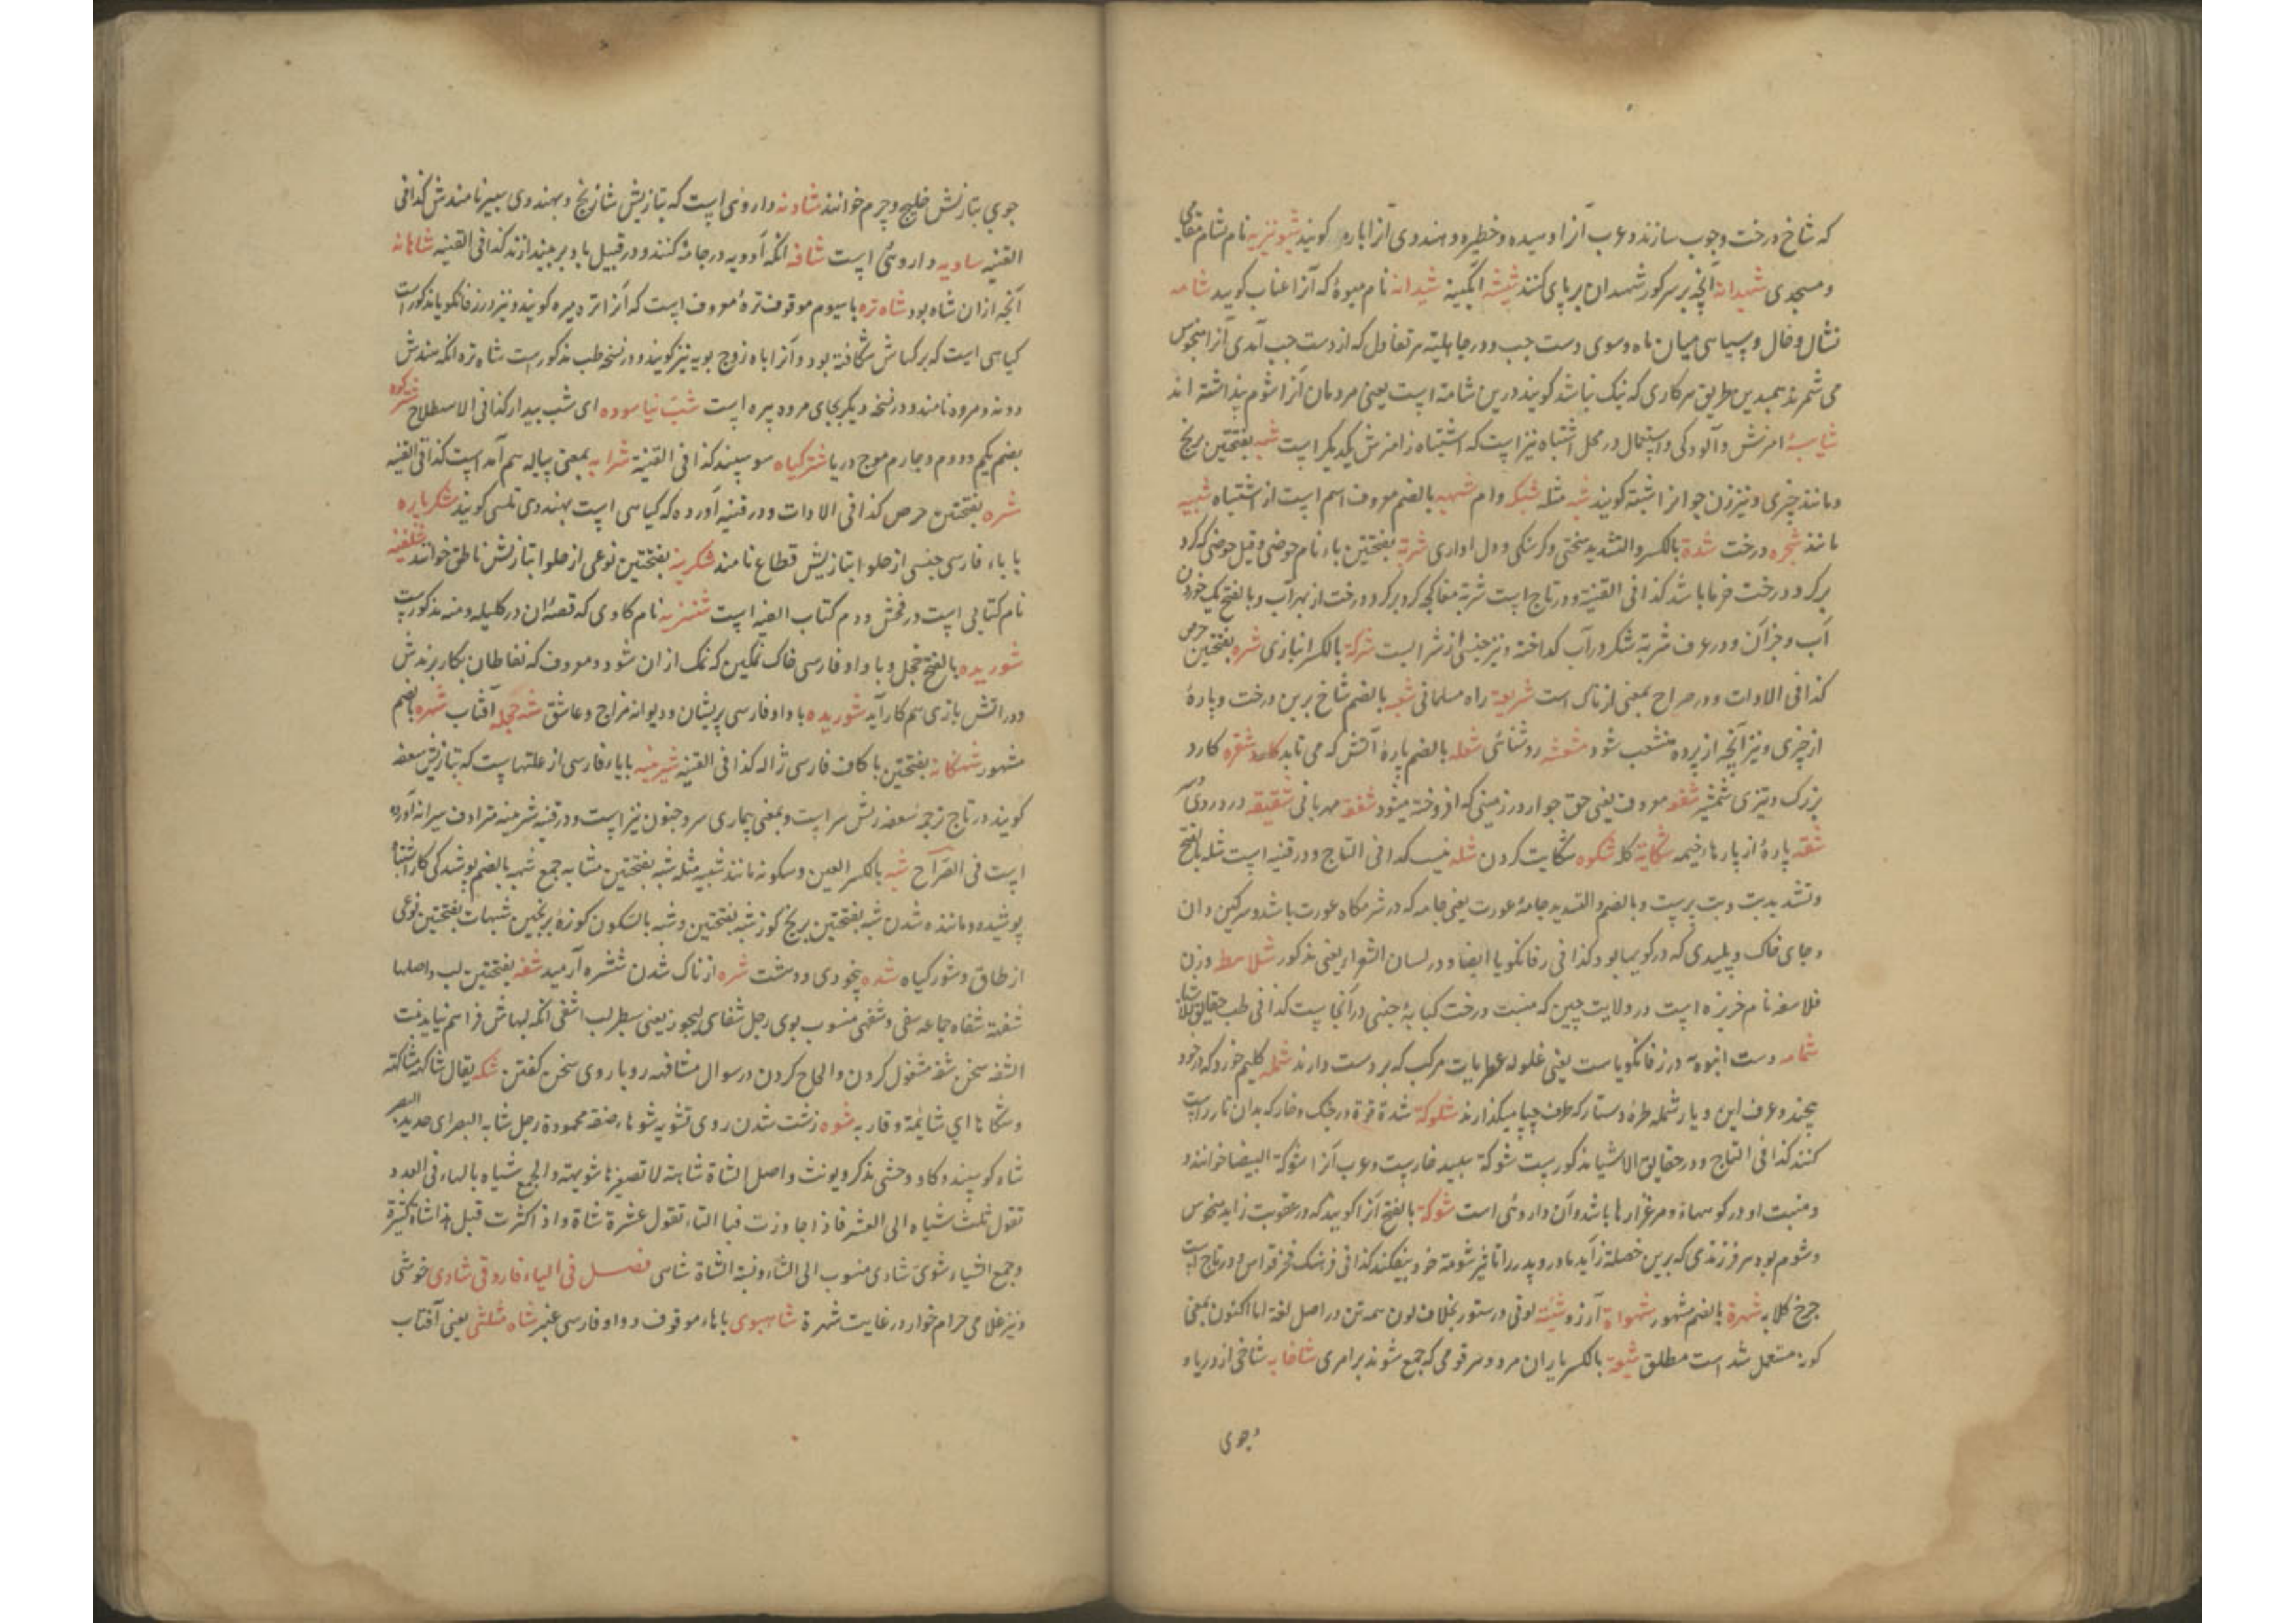 که شاخ درخت و چوب سازند و عرب آنرا وسیده و خطیره و هندوی آنرا باره گویند شبونیزیه نام شام مقامی
و مسجدی شهیدانه آنچه بر سر کور شهیدان بر پای کنند شیشه ابگینه شیدانه نام میوهٔ که آنرا عناب کویند شامه
نشان و خال و سیاهی میان ماه و سوی دست چپ و در جاهلیته هر تفاول که از دست چپ آمدی آنرا منحوس
می شمرند همبدین طریق هر کاری که نیک نباشد کویند درین شامة است یعنی مردمان آنرا شوم پنداشته اند
شایبهٔ امزش و آلودکی و استعمال در محل اشتباه نیز است که اشتباه ز امزش یکدیکر است شبه بفتحتین برنج
و مانند چیزی و نیز زن جوانرا شبة کویند شبه مثله شبکه دام شبهه بالضم معروف اسم است از اشتباه شبیه
مانند شجره درخت شدة بالکسر و التشدید سختی و کرسنکی و دل اواری شربة بفتحتین باء نام حوضی و قیل حوضی که کرد
بر کرد درخت خرما باشد کذا فی القنیة و در تاج است شربة مغاکچه کرد بر کرد درخت از بهر آب و بالفتح یک خوردن
آب و جز آن و در عرف شربة شکر در آب کداخته و نیز جنسی از شرابست شرکة بالکسر انبازی شره بفتحتین حرص
کذا فی الادات و در صراح بمعنی ازناک است شریعة راه مسلمانی شعبه بالضم شاخ برین درخت و پارهٔ
از چیزی و نیز آنچه از پرده منشعب شود مشعشه روشنائی شعله بالضم پارهٔ آتش که می تابد شفره کارد
بزرک و تیزی شمشیر شفعه معروف یعنی حق جوار در زمینی که افروخته میشود شفقة مهربانی شقیقه درد
شقه پارهٔ از پارهاء خیمه شکایة کله شکوه شکایت کردن شله کذا فی التاج و در قنیه است شله بالفتح
و تشدید بت و بت پرست و بالضم و التشدید جامهٔ عورت یعنی جامه که در شرمکاه عورت باشد و سرکین دان
و جای خاک و پلیدی که در کویها بود کذا فی زفانکویا ایضا و در لسان الشعرا یعنی مذکور شلامط وزن
فلاسفه نام خریزه است در ولایت چین که منبت درخت کبابهٔ چینی در آنجاست کذا فی طب حقایق الاشیا
شمامه دست انبویه در زفانکویاست یعنی غلوله عطریات مرکب که بر دست دارند شمله کلیم خورد که در خود
پیچند و عرف این دیار شمله طرهٔ دستار که طرف چپا میکذارند شلوکة شدة قوة در جنک و خار که بدان تار راست
کنند کذا فی التاج و در حقایق الاشیا مذکورست شوکة سپید خارست و عرب آنرا شوکة البیضا خوانند و
و منبت او در کوهها و مرغزارها باشد و آن داروئی است شوکة بالفتح آنرا کویند که در عقوبت زاید منحوس
و شوم بود هر فرزندی که برین خصلة زاید مادر و پدر را تاخیر شومة خود بیفکند کذا فی فرهنک فخر قواس و در تاج است
چرخ کلابه شهرة بالضم مشهور شهواة آرزو شئته لونی در ستور بخلاف لون همه تن در اصل لغة اما اکنون بمعنی
کونه مستعمل شد است مطلق شیعة بالکسر یاران مرد و هر قومی که جمع شوند بر امری شاخابه شاخی از دریا و
و جوی
جوی بتازیش خلیج و چرم خوانند شادنه داروئی است که بتازیش شازنج و بهندوی سبیر نامندش کذا فی
القنیه ساویه داروئی است شافه انکه آدویه در جامهٔ کنند و در قبیل یا دبر میندازند کذا فی القنیه شاهانه
آنچه از ان شاه بود شاه تره با سیوم موقوف ترهٔ معروف است که آنرا تره میره کویند و نیز در زفانکویا مذکور است
کیاهی است که برکهاش شکافته بود و آنرا باه زوج بویه نیز کویند و در نسخهٔ طب مذکور است شاه تره انکه هندش
دونه و مروه نامند و در نسخه دیکر بجای مروه پره است شب نیاسوده ای شب بیدار کذا فی الاصطلاح
بضم یکم و دوم و چارم موج دریا شترکیاه سوسپند کذا فی القنیة شرابه بمعنی پیاله هم آمد است کذا فی القنیه
شره بفتحتین حرص کذا فی الادات و در قنیه آورده که کیاهی است بهندوی تلسی کویند شکرپاره
با باء فارسی جنسی از حلوا بتازیش قطاع نامند شکرینه بفتحتین نوعی از حلوا بتازیش ناطق خوانند شلفیه
نام کتابی است در فحش و دوم کتاب الفیه است شنزبه نام کاوی که قصهٔ ان در کلیله و دمنه مذکورست
شوریده بالفتح خجل و با واو فارسی خاک نمکین که نمک از ان شود و معروف که نفاطان بکار برندش
و در اتش بازی هم کار آید شوریده با واو فارسی پریشان و دیوانه مزاج و عاشق آفتاب شهره بالضم
مشهور شهنکانه بفتحتین با کاف فارسی ژاله کذا فی القنیه شیرینه با یاء فارسی از علتهاست که بتازیش سعفه
کویند در تاج ترجمهٔ سعفه رش سر است و بمعنی بیماری سر و جنون نیز است و در قنیه شرینه مترادف سیرانه آورده
است فی الصراح شبه بالکسر العین و سکونه مانند شبیه مثله شبه بفتحتین مشابه جمع شبهه بالضم پوشیدکی کار اشتباه
پوشیده و ماننده شدن شبه بفتحتین برنج کوزشبه بفتحتین و شبه بالسکون کوزهٔ برنجین شبهات بفتحتین نوعی
از طاق و شور کیاه شده بیخودی و دهشت شره ازناک شدن ششره آرمید شفه بفتحتین لب واصلها
شفهة شفاه جماعه سفی و شفهی منسوب بوی رجل شفاهی لیجوز یعنی سطبر لب اشفی انکه لبهاش فراهم نیاید بنت
الشفه سخن شفه مشغول کردن و الحاح کردن در سوال مشافهه روباروی سخن کفتن شکه یقال شاکهه مشاکهة
و شکاها ای شابهة و قاربه شوه زشت شدن روی تشویه شوهاء صفة محمودة رجل شابه البصر ای حدید البصر
شاه کوسپند و کاو وحشی یذکر و یونث و اصل الشاة شاهة لا تصغیرها شویهة و الجمع شیاه بالهاء فی العدد
تقول ثلث شیاه الی العشر فاذا جاوزت فبا التاء تقول عشرة شاة واذا کثرت قیل هذا شاة کثیرة
و جمع الشیاء شوی شاوی منسوب الی الشاء و نسبة الشاة شاهی فصل فی الیاء فاروقی شادی خوشی
و نیز غلامی حرام خوار در غایت شهرة شاهبوی باهاء موقوف و واو فارسی عنبر شاه مثلثی یعنی آفتاب